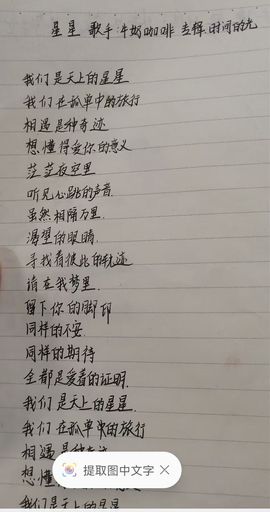 星星 歌手:牛奶咖啡 专辑:时间的光
我们是天上的星星
我们在孤单中的旅行
相遇是种奇迹
想懂得爱你的意义
茫茫夜空里
听见心跳的声音
虽然相隔万里.
渴望的眼睛.
寻找着彼此的轨迹
请在我梦里.
留下你的脚印
同样的不安.
同样的期待
全都是爱着的证明.
我们是天上的星星.
我们在孤单中的旅行
相遇是种奇迹
想懂
提取图中文字
我们是天上的星星